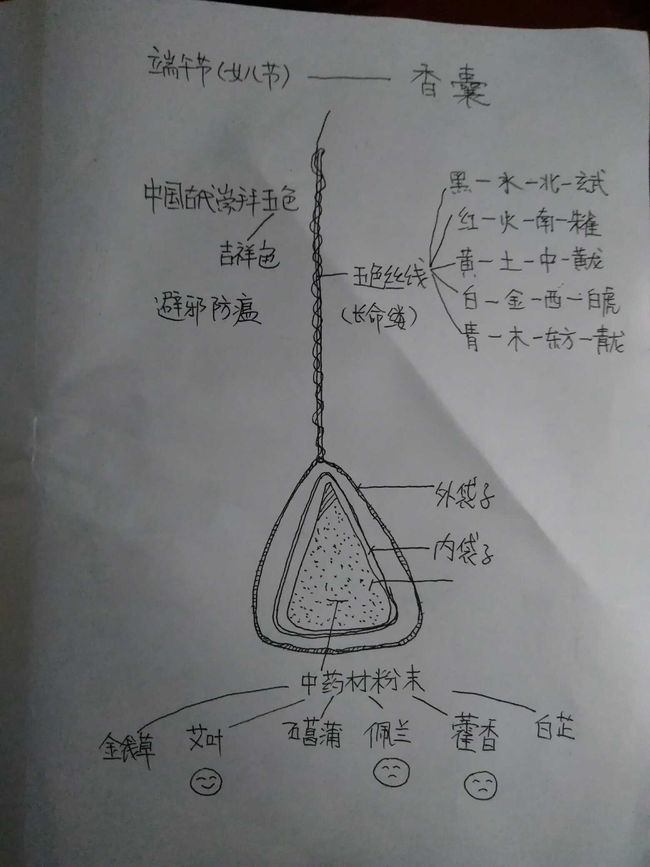 端午节(女儿节)——香囊
中国古代崇拜五色
吉祥色
避邪防瘟
五色丝线
(长命缕)
黑-水-北-玄武
红-火-南-朱雀
黄-土-中-黄龙
白-金-西-白虎
青-木-东方-青龙
外袋子
内袋子
中药材粉末
金钱草 艾叶 石菖蒲 佩兰 藿香 白芷